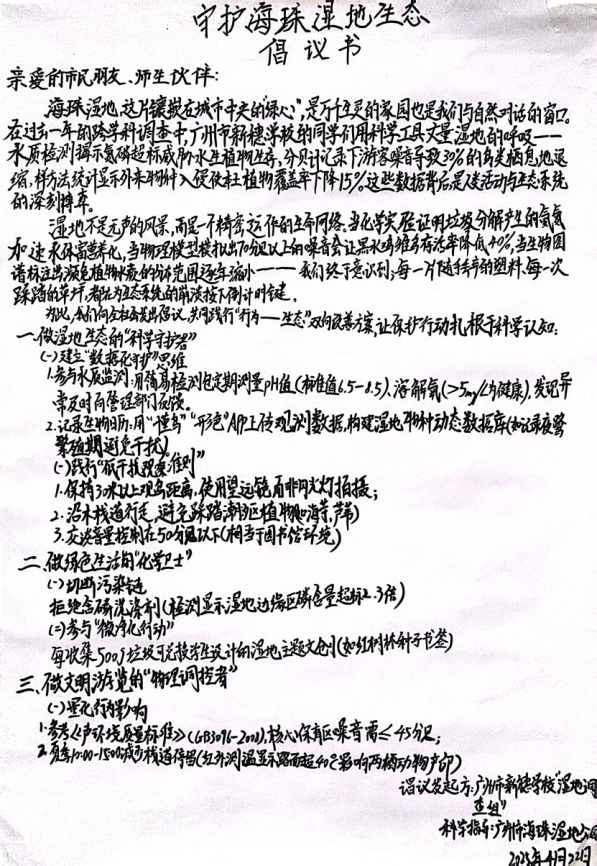 守护海珠湿地生态
倡议书
亲爱的市民朋友、师生伙伴：
海珠湿地，这片镶嵌在城市中央的“绿心”，是万千生灵的家园也是我们与自然对话的窗口。
在过去一年的跨学科调查中，广州市新穗学校的同学们用科学工具丈量湿地的呼吸——
水质检测揭示氮磷超标威胁水生植物生存，分贝计记录下游客噪音导致30%的鸟类栖息地退
缩，样方法统计显示外来物种入侵使本土植物覆盖率下降15%。这些数据背后是人类活动与生态系统
的深刻博弈。
湿地不是无声的风景，而是一个精密运作的生命网络。当化学实验证明垃圾分解产生的氨氮
加速水体富营养化，当物理模型模拟出70分贝以上的噪音会让黑水鸡雏鸟存活率降低40%，当生物图
谱标注出濒危植物水蕨的分布范围逐年缩小——我们终于意识到，每一片随手丢弃的塑料、每一次
踩踏的草坪，都在为生态系统的崩溃按下倒计时键。
为此，我们向全社会发出倡议，共同践行“行为——生态”双向改善方案，让保护行动扎根于科学认知：
一、做湿地生态的“科学守护者”
(一)建立“数据化守护”思维
1.参与水质监测：用简易检测包定期测量pH值(标准值6.5-8.5)、溶解氧(>5mg/L为健康)，发现异
常及时向管理部门反馈。
2.记录生物日历：用“懂鸟”“形色”APP上传观测数据，构建湿地物种动态数据库(如记录夜鹭
繁殖期避免干扰)。
(二)践行“低干扰观察准则”
1.保持30米以上观鸟距离，使用望远镜而非闪光灯拍摄；
2.沿木栈道行走，避免踩踏潮间区植物(如海芋、芦苇)
3.交谈音量控制在50分贝以下(相当于图书馆环境)
二、做绿色生活的“化学卫士”
(一)切断污染链
拒绝含磷洗涤剂(检测显示湿地边缘区磷含量超标2.3倍)
(二)参与“微净化行动”
每收集500g垃圾可兑换学生设计的湿地主题文创(如红树林种子书签)
三、做文明游览的“物理调控者”
(一)量化行为影响
1.参考《声环境质量标准》(GB3096-2008)，核心保育区噪音需≤45分贝；
2.夏季10:00-15:00减少栈道停留(红外测温显示路面超40℃影响两栖动物产卵)
倡议发起方：广州市新穗学校“湿地调
查组”
科学指导：广州市海珠湿地公园
2025年4月22日